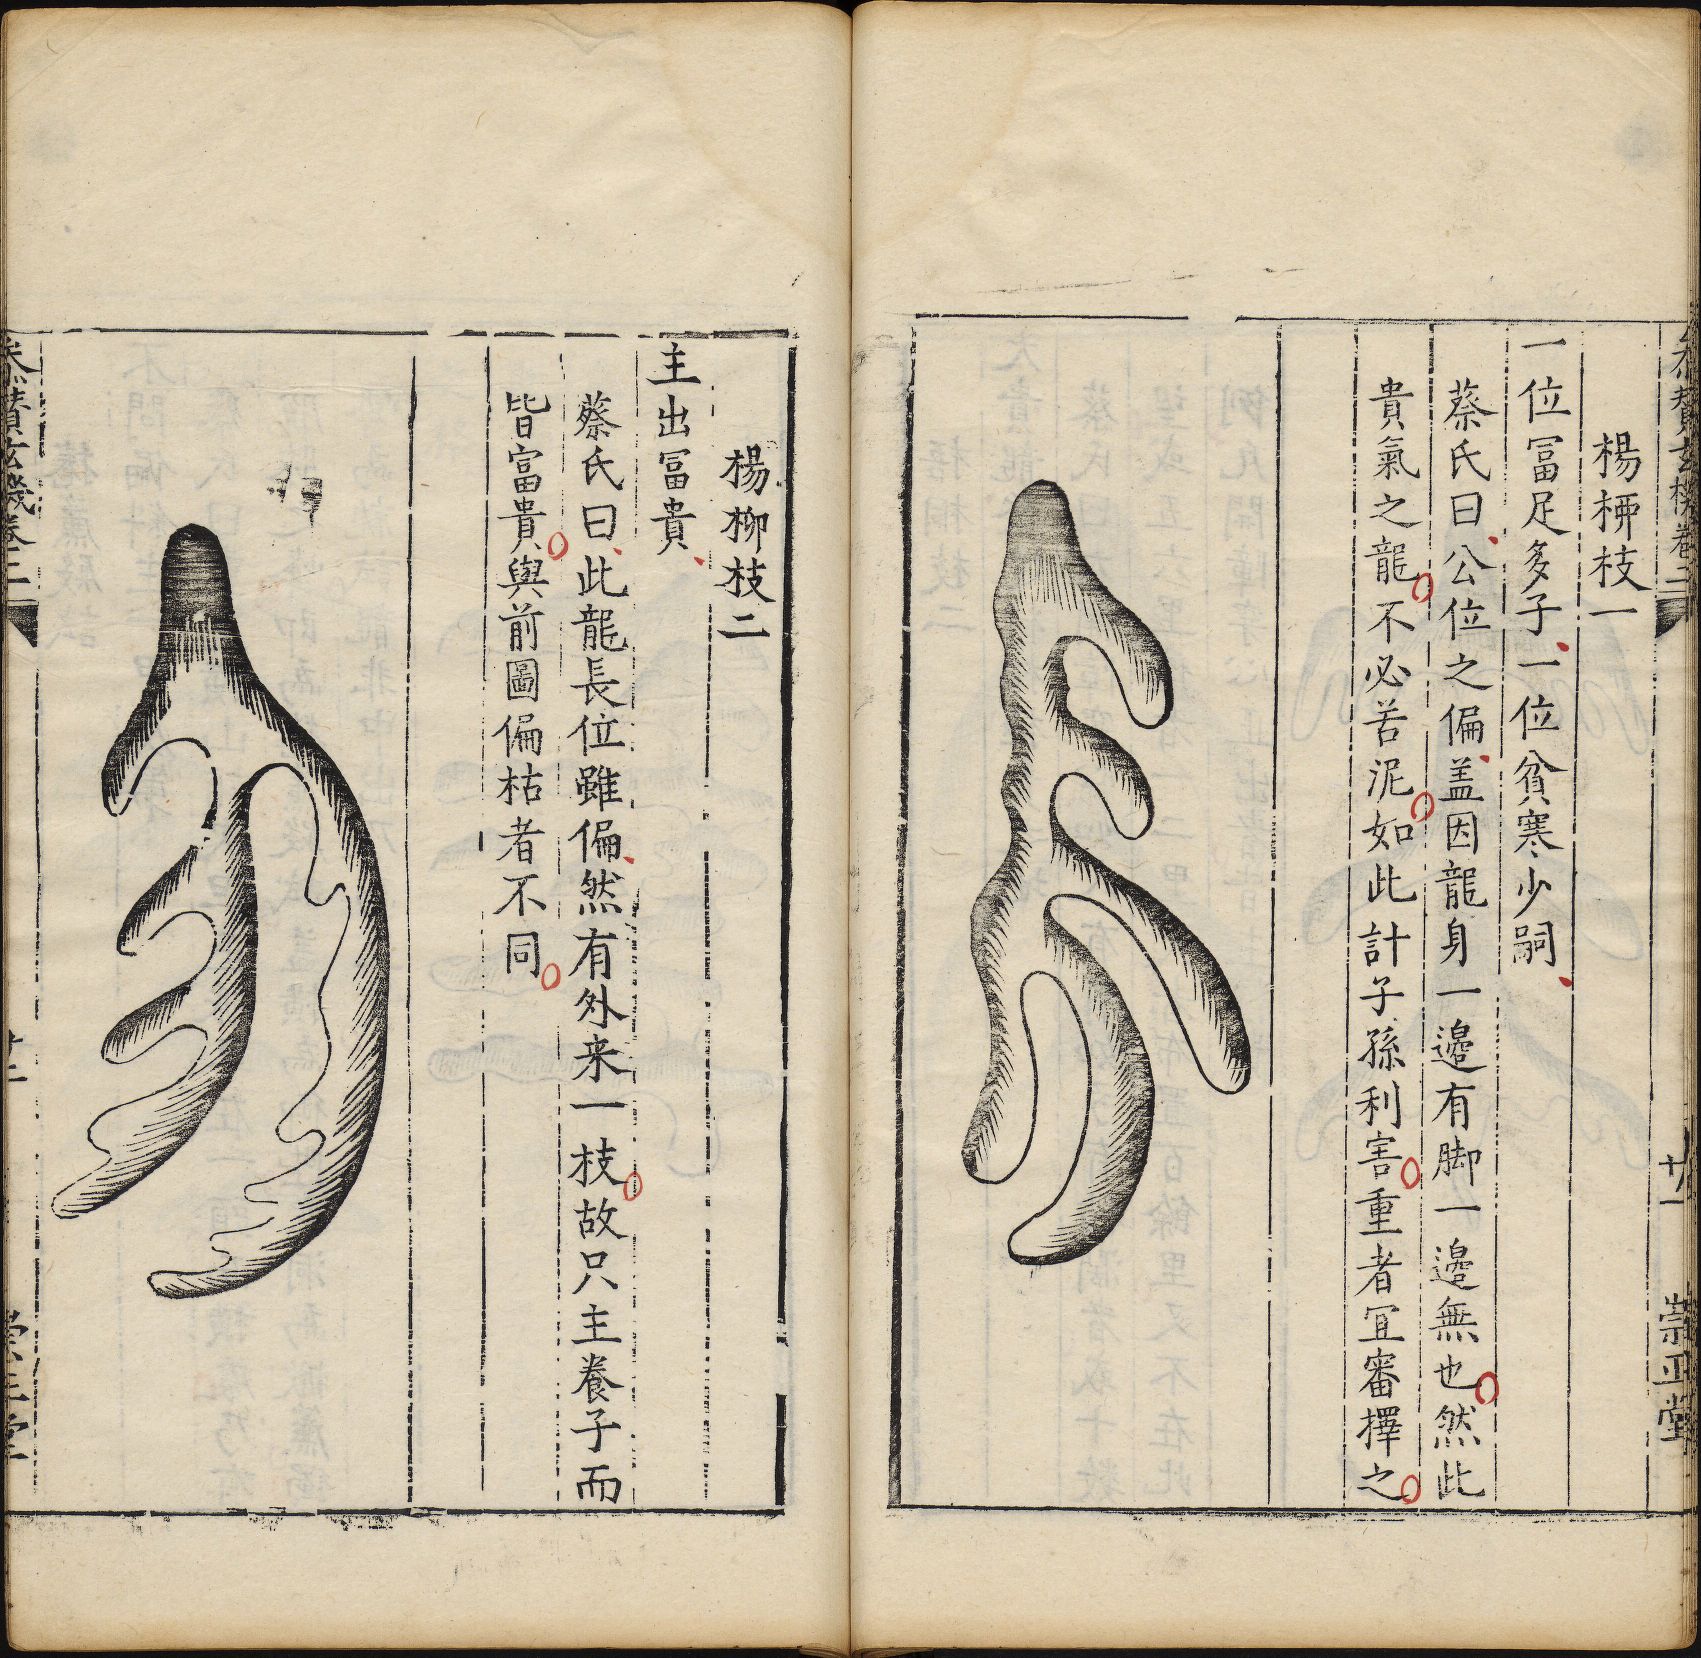 楊栁枝一
一位冨足多子一位貧寒少嗣
蔡氏曰公位之偏盖因龍身一邊有脚一邊無也然此
貴氣之龍不必苦泥如此計子孫利害重者宜審擇之
廿一
崇正堂
楊柳枝二
主出冨貴
蔡氏曰此龍長位雖偏然有外来一枝故只主養子而
皆富貴與前圖偏枯者不同